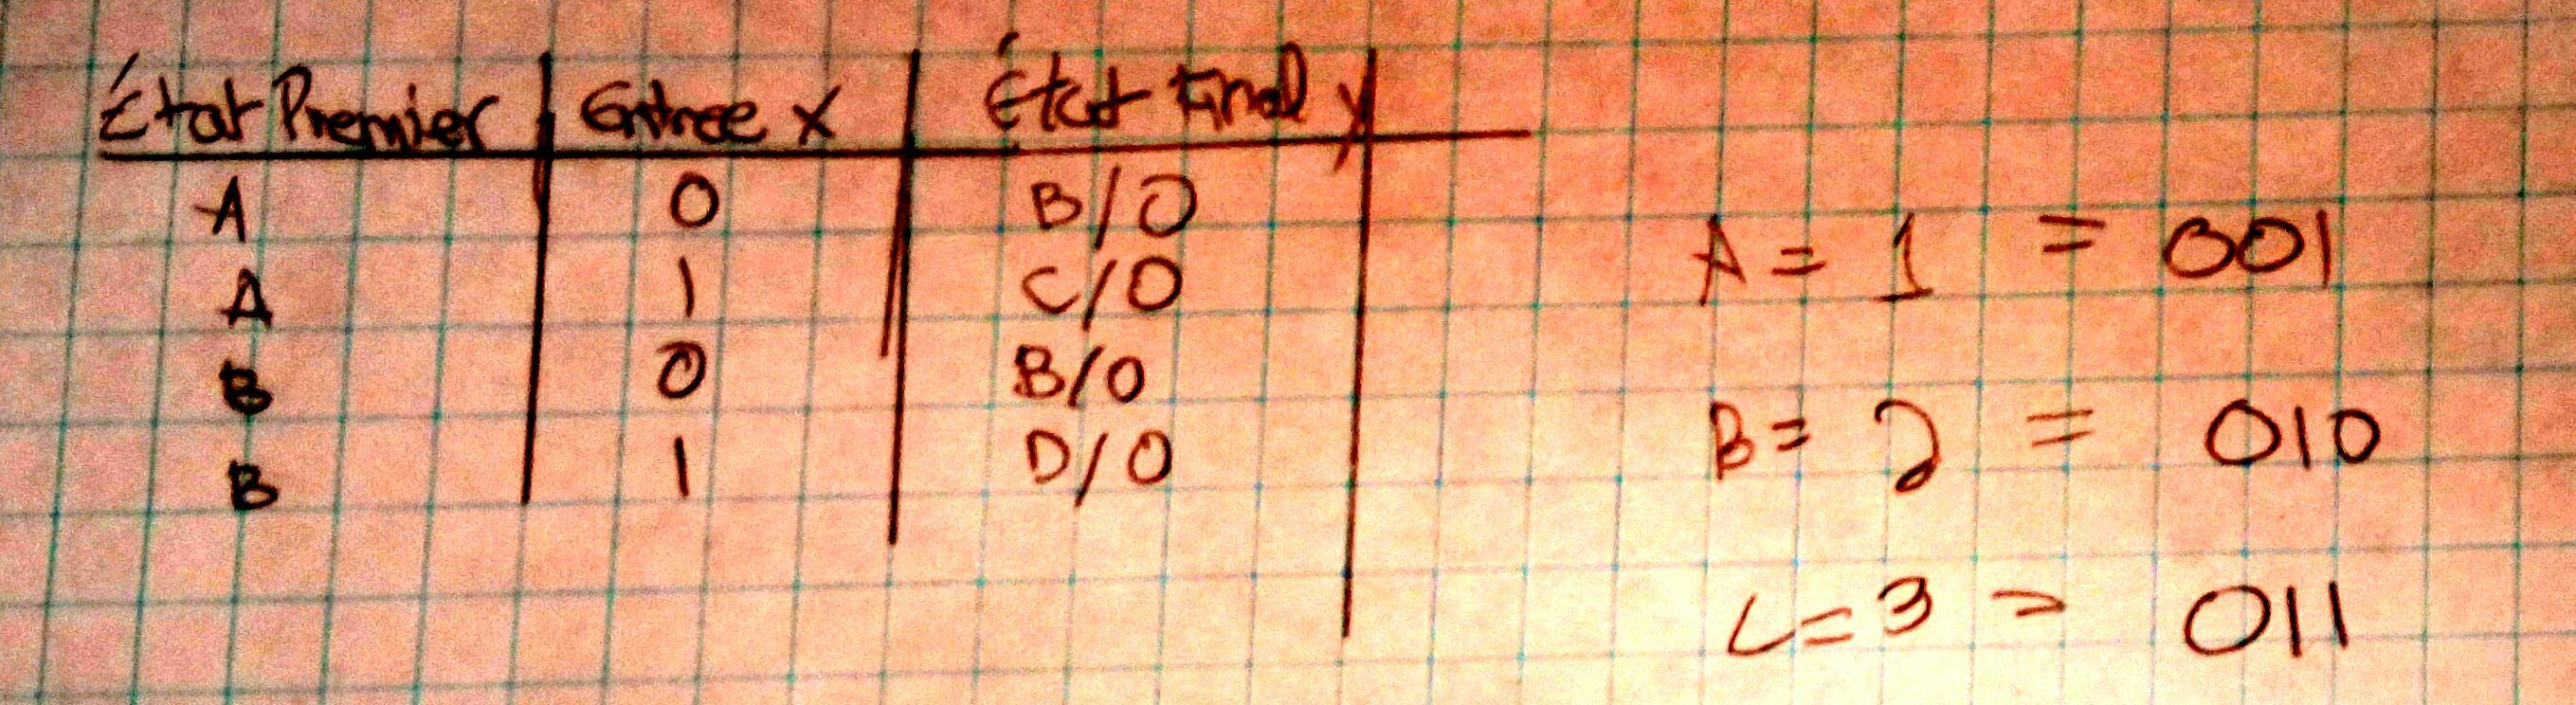 État Premier Entree X État Final y
A 0 B/0
A 1 C/0
B 0 B/0
B 1 D/0
A = 1 = 001
B = 2 = 010
C = 3 = 011